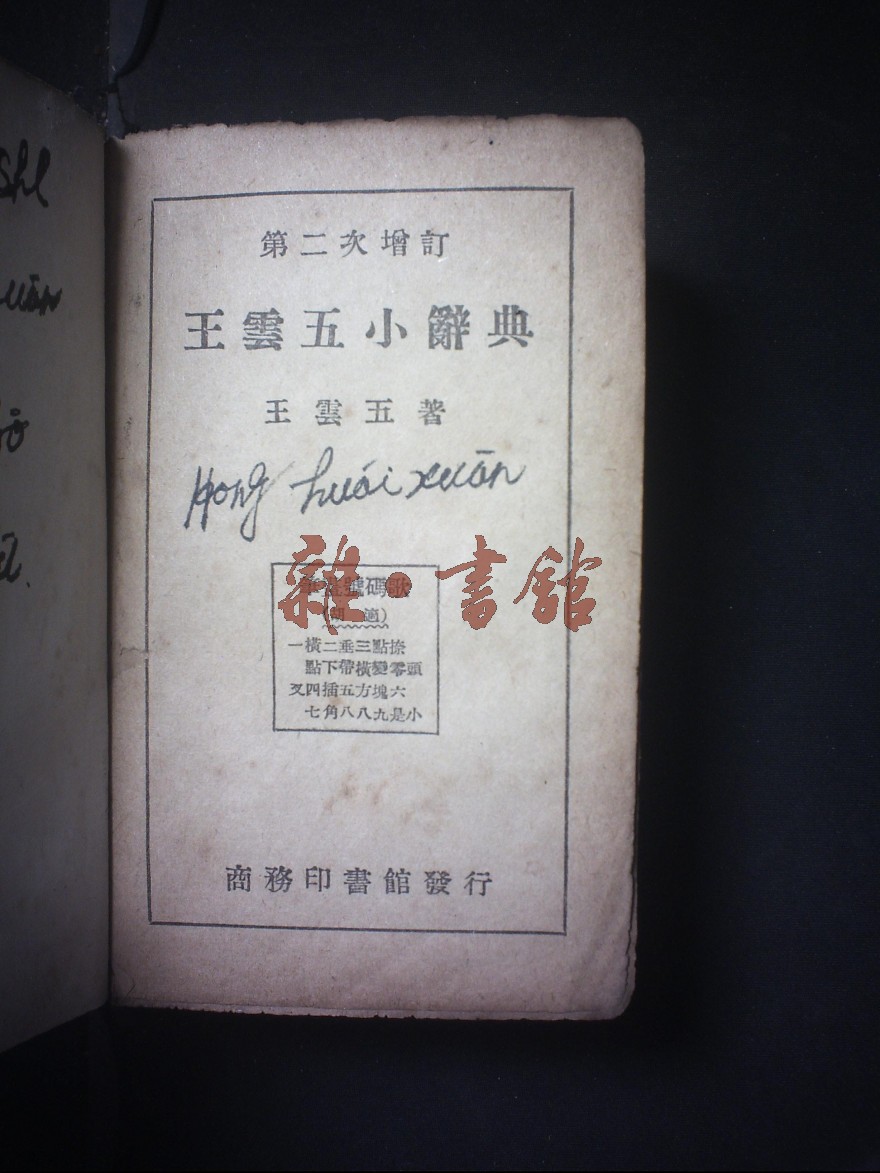 第二次增訂
王雲五小辭典
王雲五著
Hong huái xuān
雜·書館
號碼歌
一橫二垂三點捺
點下帶橫變零頭
叉四插五方塊六
七角八八九是小
商務印書館發行